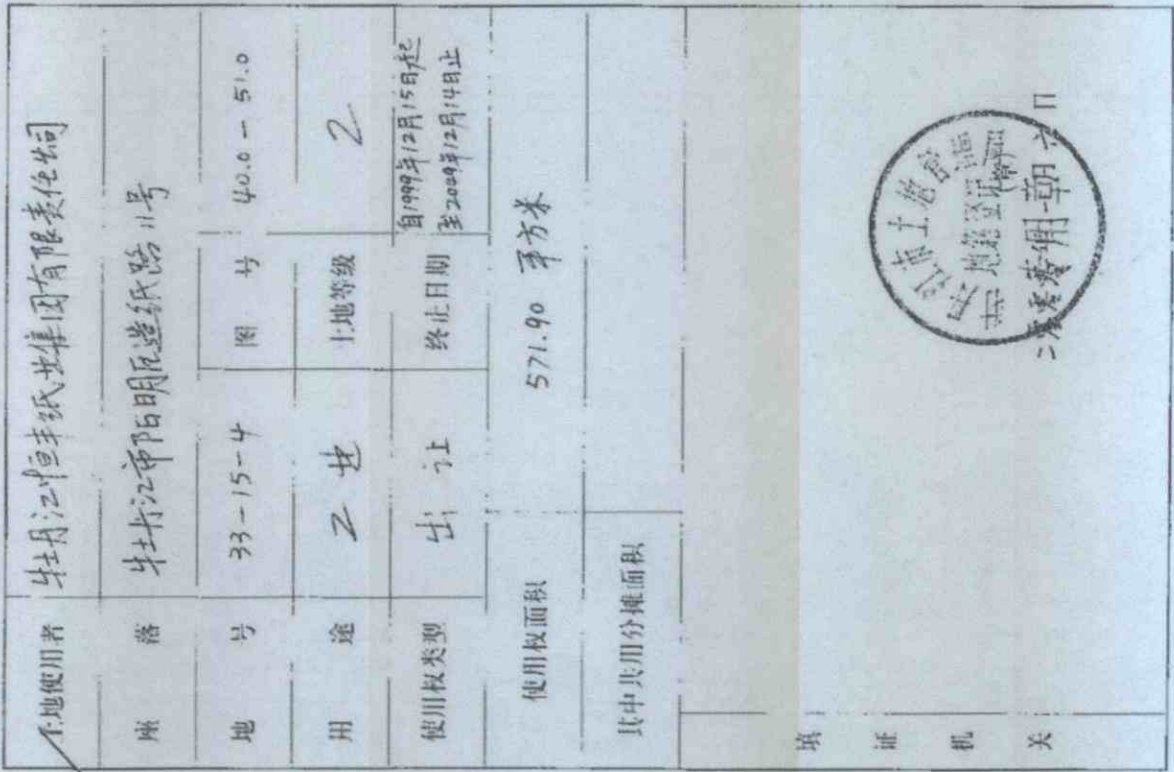 土地使用者 牡丹江恒丰纸业集团有限责任公司
座落 牡丹江市阳明区造纸路11号
地号 33-15-4 图号 40.0-51.0
用途 工业 土地等级 2
使用权类型 出让 终止日期 自1999年12月15日起
至2049年12月14日止
使用权面积 571.90 平方米
其中共用分摊面积
填证机关
江市土地管理
地籍登记